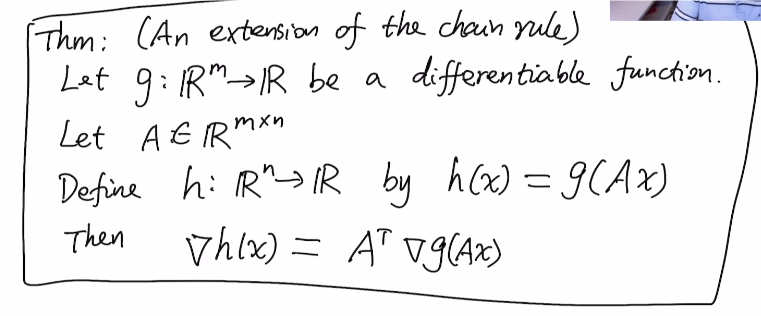 Thm: (An extension of the chain rule)
Let g: ℝᵐ→ℝ be a differentiable function.
Let A ∈ ℝᵐˣⁿ
Define h: ℝⁿ→ℝ by h(x) = g(Ax)
Then ∇h(x) = Aᵀ ∇g(Ax)